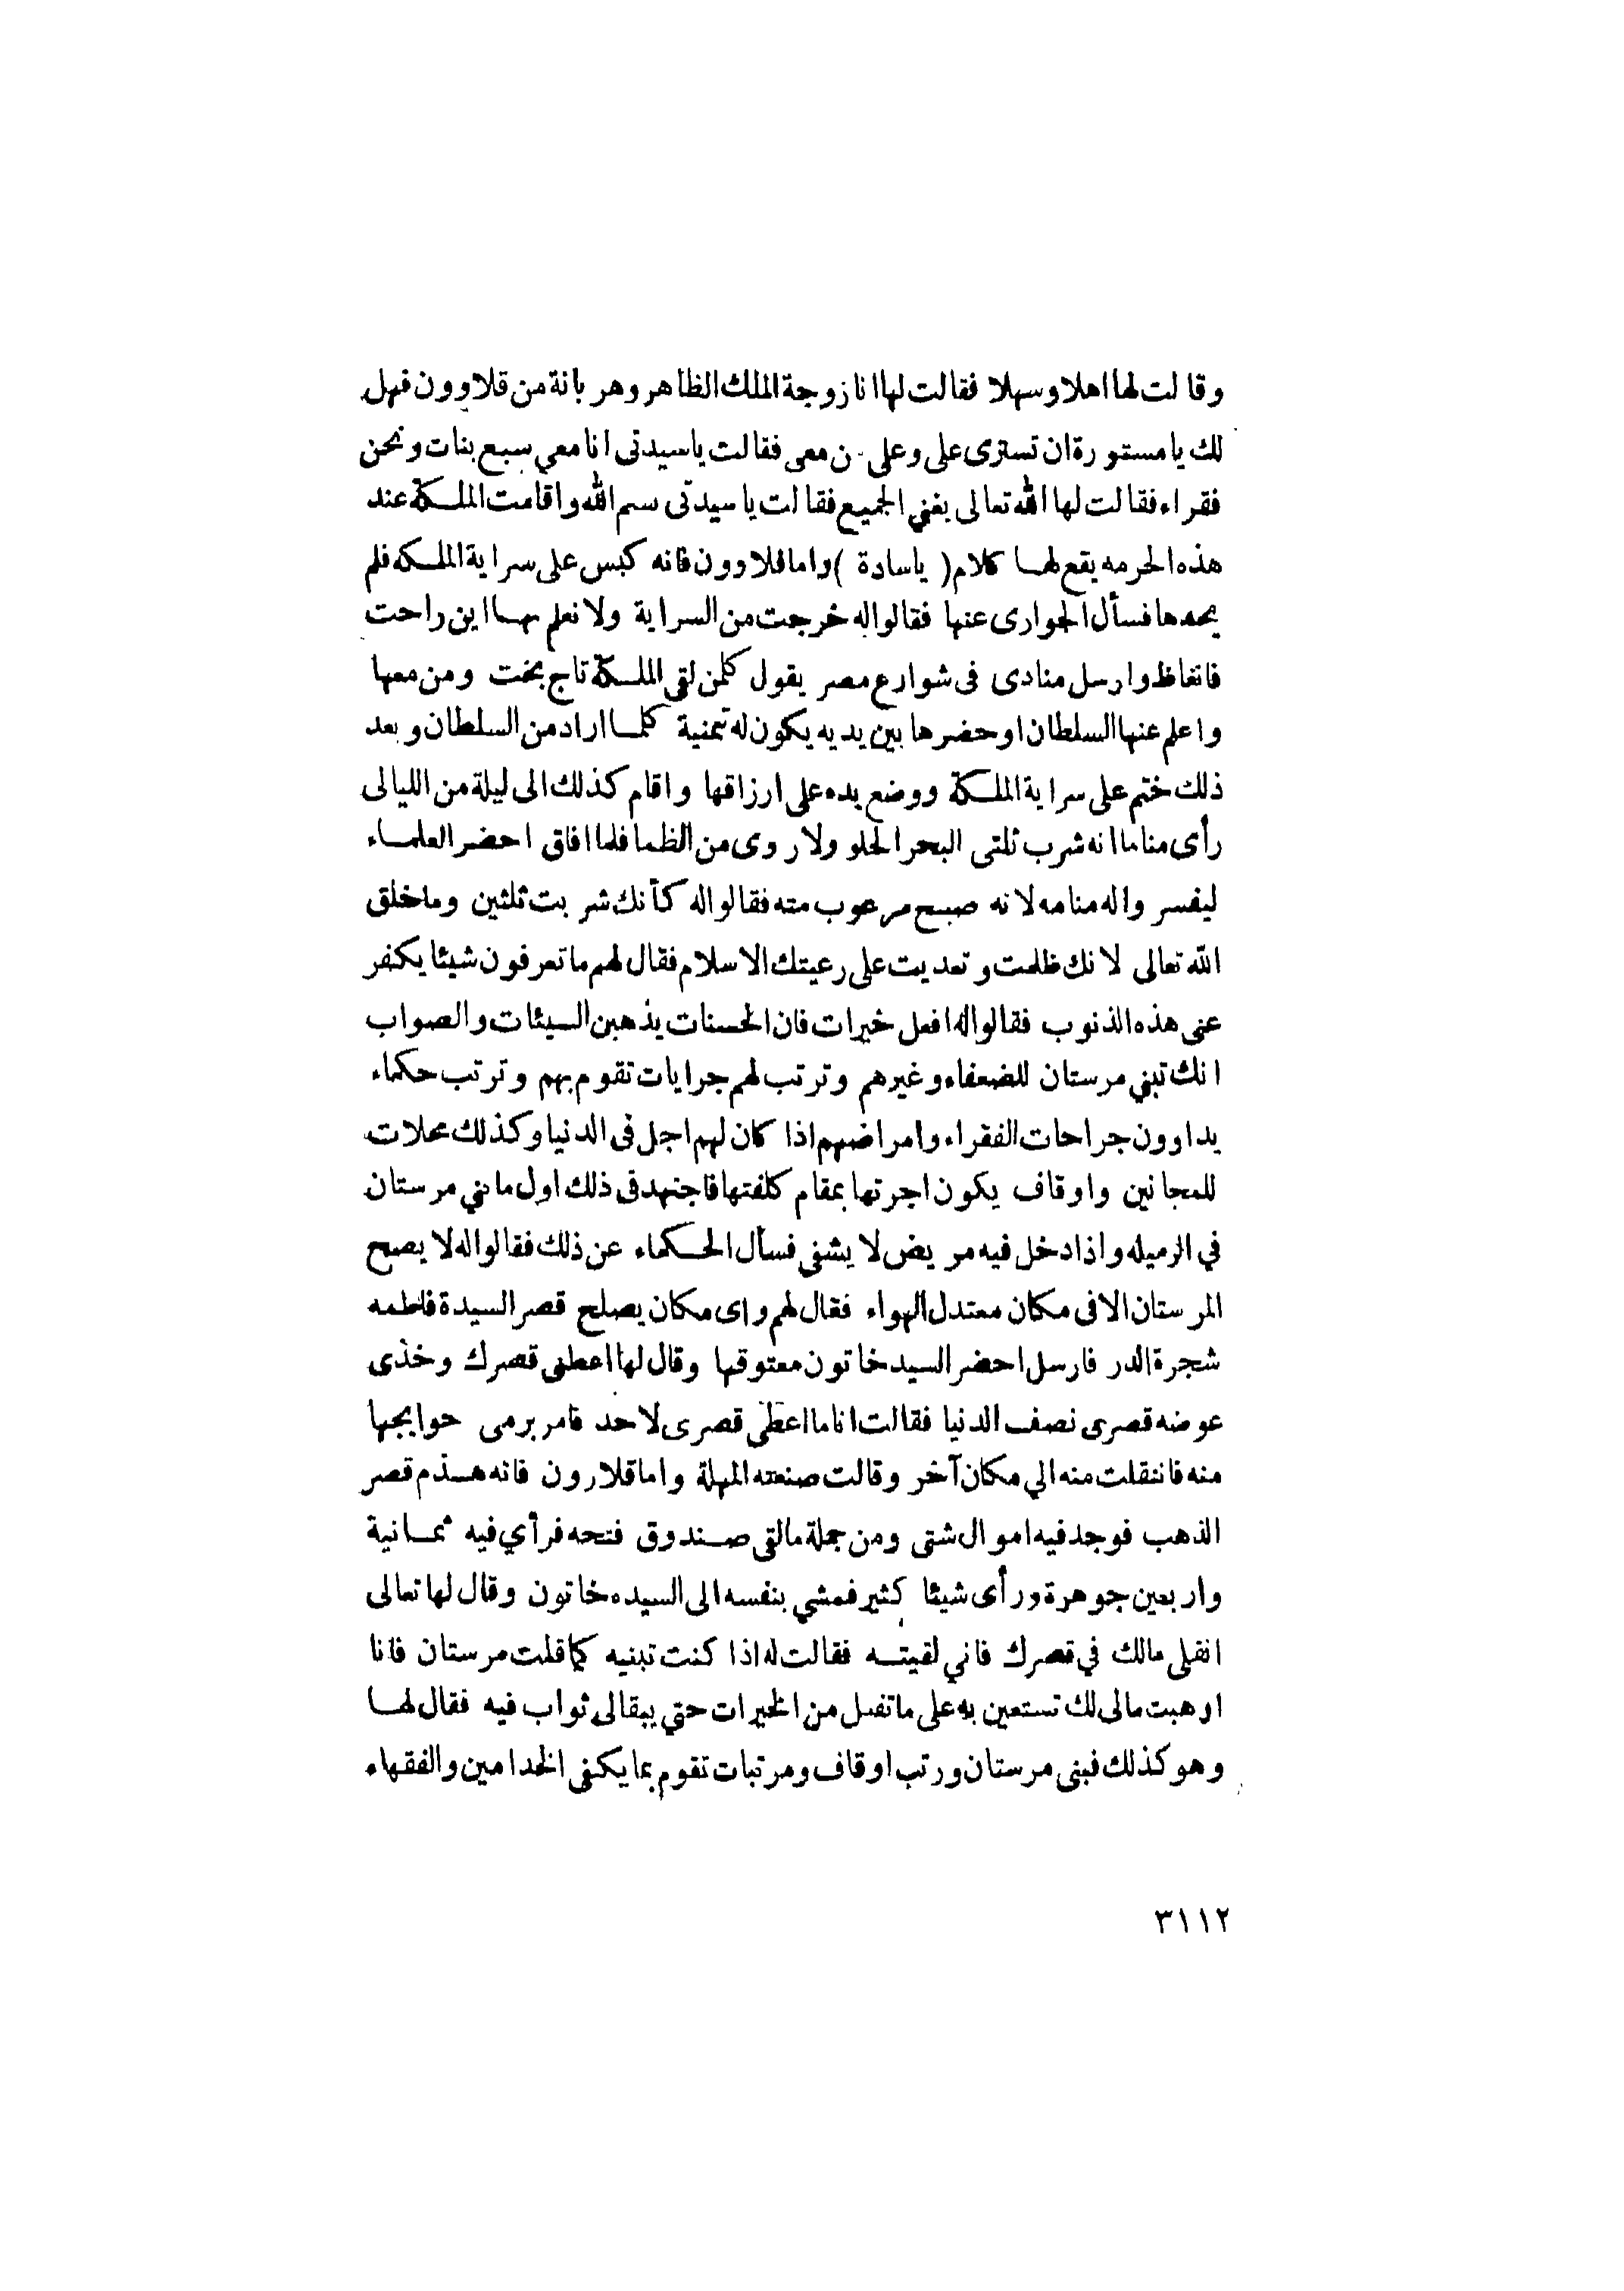 وقالت لها اهلا وسهلا فقالت لها انا زوجة الملك الظاهر وهربانة من قلاوون فهل
لك يا مستورة ان تسترى على وعلى من معى فقالت ياسيدتى انا معي سبع بنات ونحن
فقراء فقالت لها الله تعالى يغني الجميع فقالت يا سيدتى سم الله واقامت الملكة عند
هذه الحرمه يقع لها كلام ( ياسادة ) واما قلاوون فانه كبس على سراية الملكه فلم
يجدها فسأل الجوارى عنها فقالوا له خرجت من السراية ولا نعلم بها اين راحت
فانغاظ وارسل منادى فى شوارع مصر يقول كلمن لقى الملكة تاج بخت ومن معها
واعلم عنها السلطان او حضرها بين يديه يكون له تمنية كلما اراد من السلطان وبعد
ذلك ختم على سراية الملكة ووضع يده على ارزاقها واقام كذلك الى ليلة من الليالى
رأى مناما انه شرب ثلثى البحر الحلو ولا روى من الظما فلما افاق احضر العلماء
ليفسر واله منامه لانه صبح مرعوب منه فقالوا له كأنك شربت ثلثين وما خلق
الله تعالى لانك ظلمت وتعديت على رعيتك الاسلام فقال لهم ما تعرفون شيئا يكفر
عنى هذه الذنوب فقالوا له افعل خيرات فان الحسنات يذهبن السيئات والصواب
انك تبني مرستان للضعفاء وغيرهم وترتب لهم جرايات تقوم بهم وترتب حكماء
يداوون جراحات الفقراء وامراضهم اذا كان لهم اجل فى الدنيا وكذلك محلات
للمجانين واوقاف يكون اجرتها بمقام كلفتها فاجتهد فى ذلك اول ما بني مرستان
في الرميله واذا دخل فيه مريض لا يشفى فسأل الحكماء عن ذلك فقالوا له لا يصح
المرستان الا فى مكان معتدل الهواء فقال لهم واى مكان يصلح قصر السيدة فاطمه
شجرة الدر فارسل احضر السيد خاتون معتوقها وقال لها اعطى قصرك وخذى
عوضه قصرى نصف الدنيا فقالت انا ما اعطى قصرى لاحد فامر برمى حوايجها
منه فانتقلت منه الي مكان آخر وقالت صنعته المهلة واما قلارون فانه هذم قصر
الذهب فوجد فيه اموال شتى ومن جملة مالقى صندوق فتحه فرأي فيه ثمانية
واربعين جوهرة ورأى شيئا كثير فمشي بنفسه الى السيده خاتون وقال لها تعالى
انقلى مالك في قصرك فاني لقيته فقالت له اذا كنت تبنيه كما قلت مرستان فانا
اوهبت مالى لك تستعين به على ما تفعل من الخيرات حتي يبقالى ثواب فيه فقال لها
وهو كذلك فبنى مرستان ورتب اوقاف ومرتبات تقوم بما يكفى الخدامين والفقهاء
٣١١٢